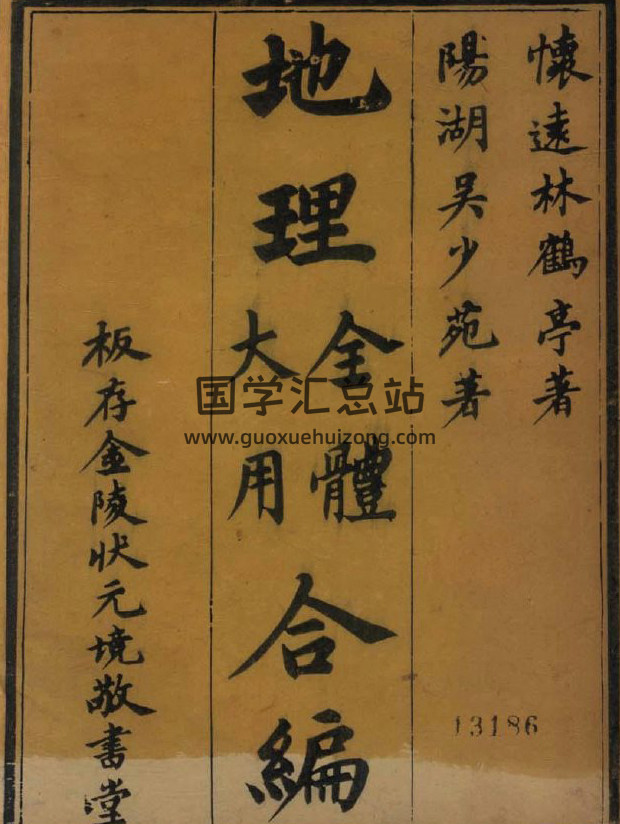 懷遠林鶴亭著
陽湖吳少苑著
地理全體大用合編
板存金陵狀元境敬書堂
13186
国学汇总站
www.guoxuehuizong.com